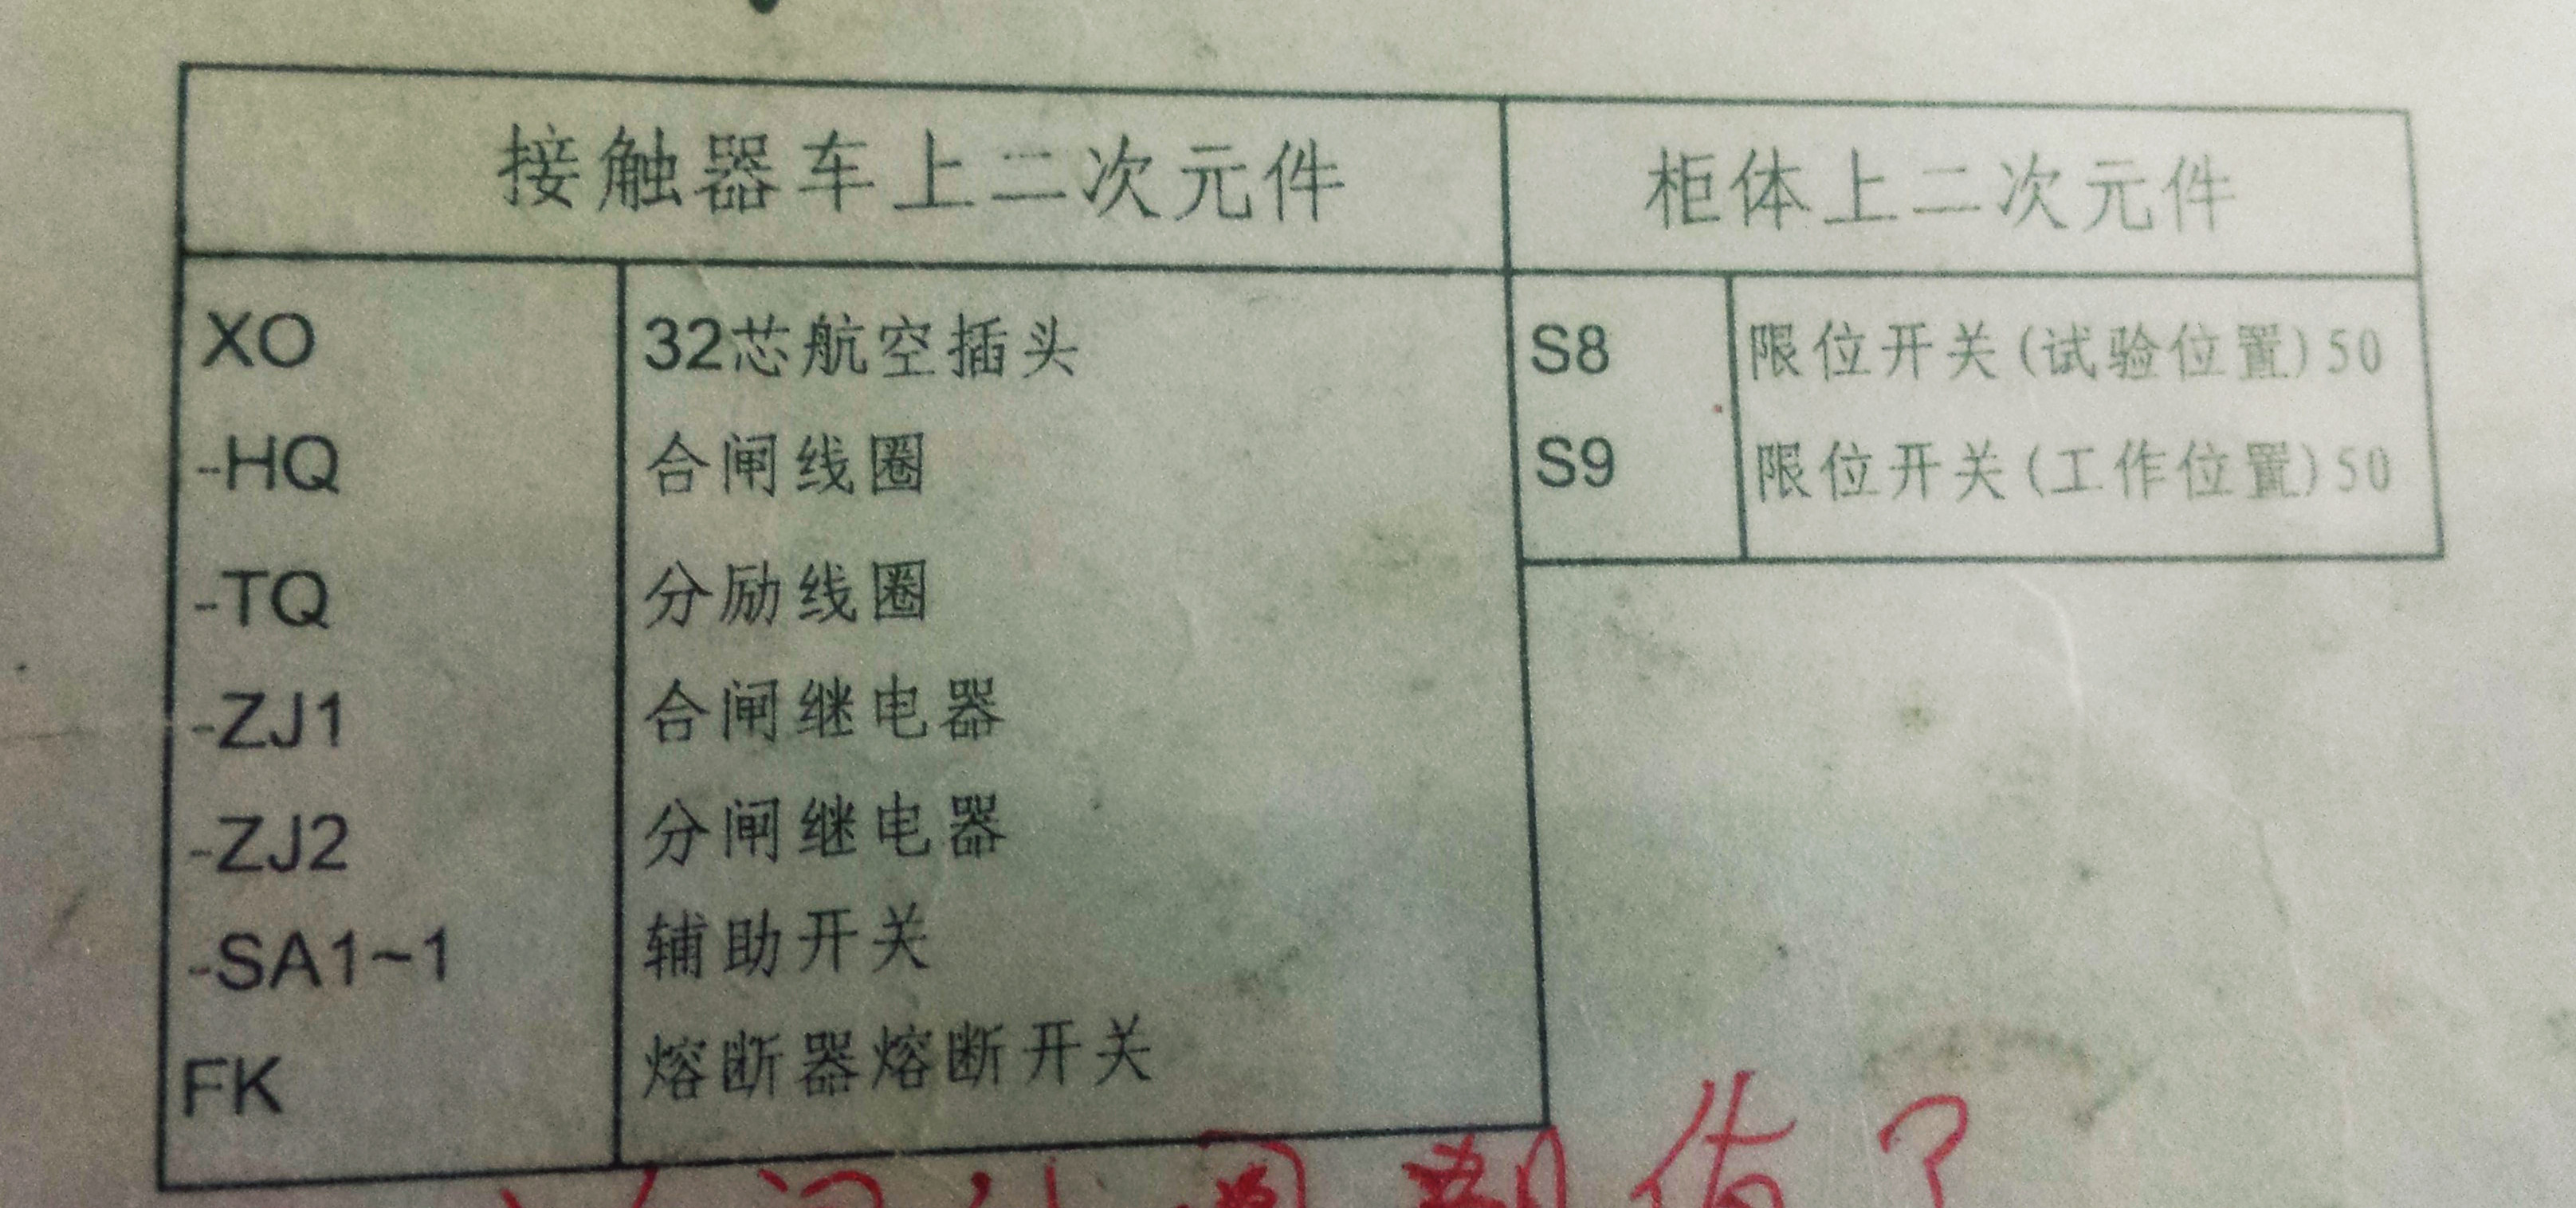 接触器车上二次元件 柜体上二次元件
XO 32芯航空插头 S8 限位开关(试验位置)50
-HQ 合闸线圈 S9 限位开关(工作位置)50
-TQ 分励线圈
-ZJ1 合闸继电器
-ZJ2 分闸继电器
-SA1~1 辅助开关
FK 熔断器熔断开关